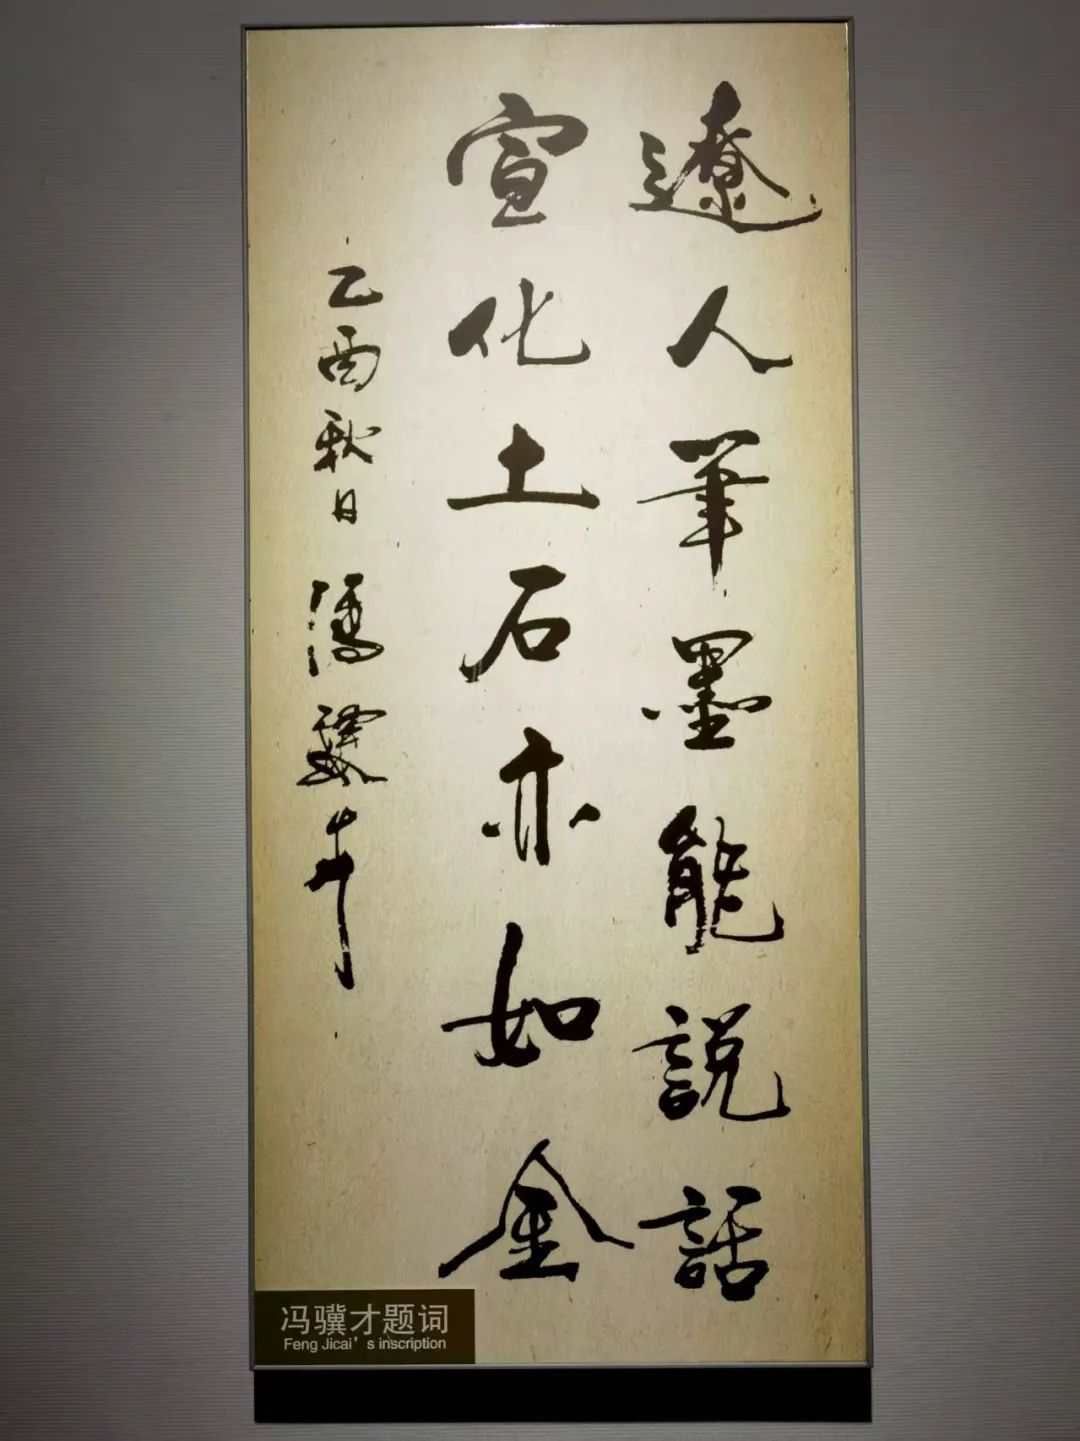 遼人筆墨能說話
宣化土石亦如金
乙酉秋日 馮驥才
冯骥才题词
Feng Jicai's inscription